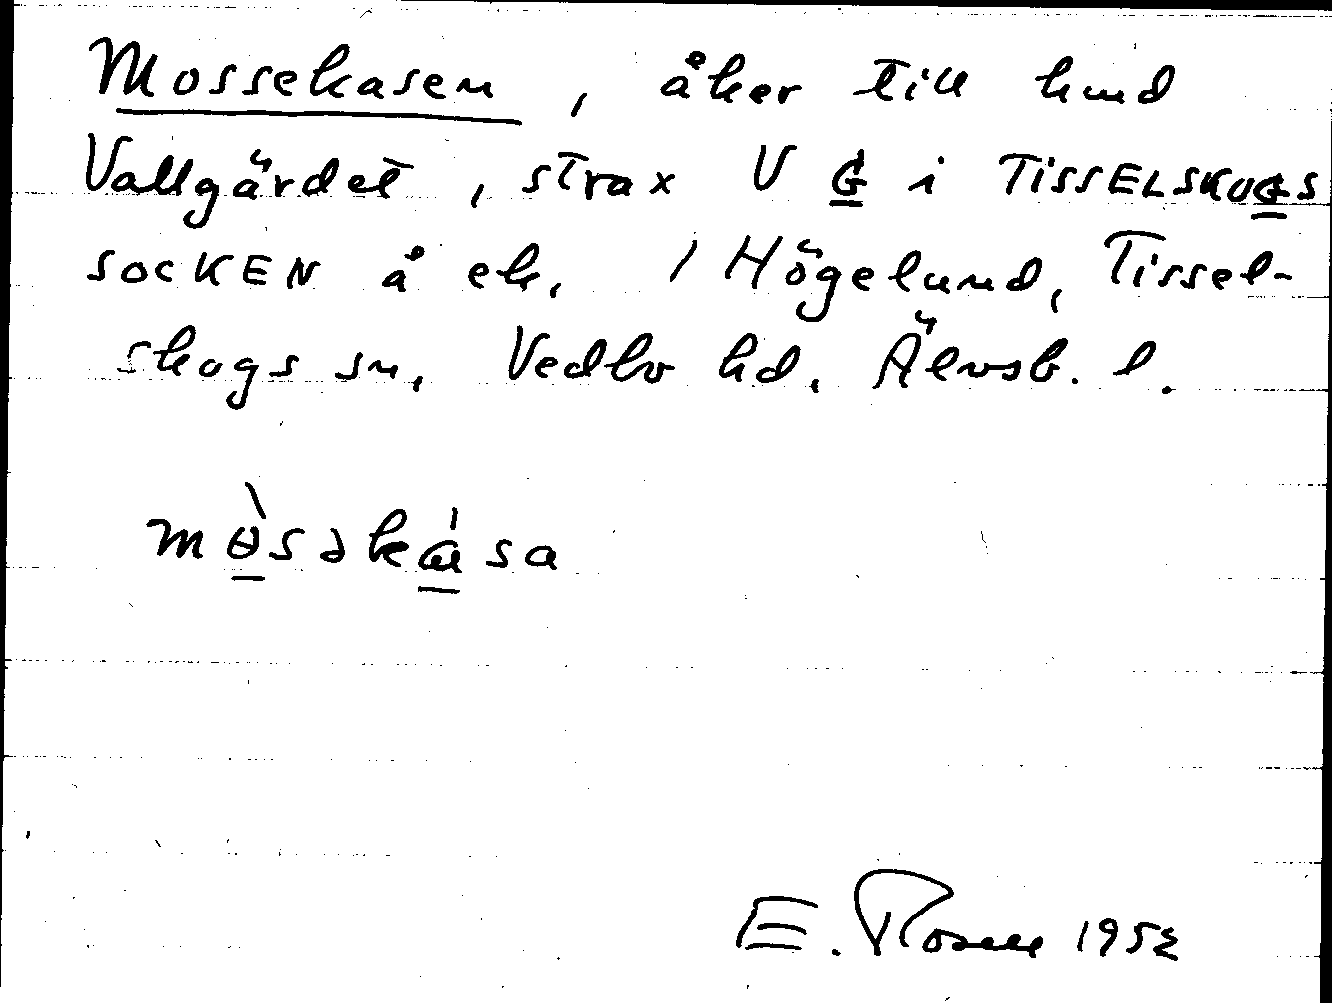 Mossekasen, åker till hmd
Vallgärdet, strax V G i TISSELSKOGS
SOCKEN å ek. 1 Högelund, Tissel-
skogs sn, Vedbo hd, Älvsb. l.
mɵ̀səkása
E. Rosell 1952